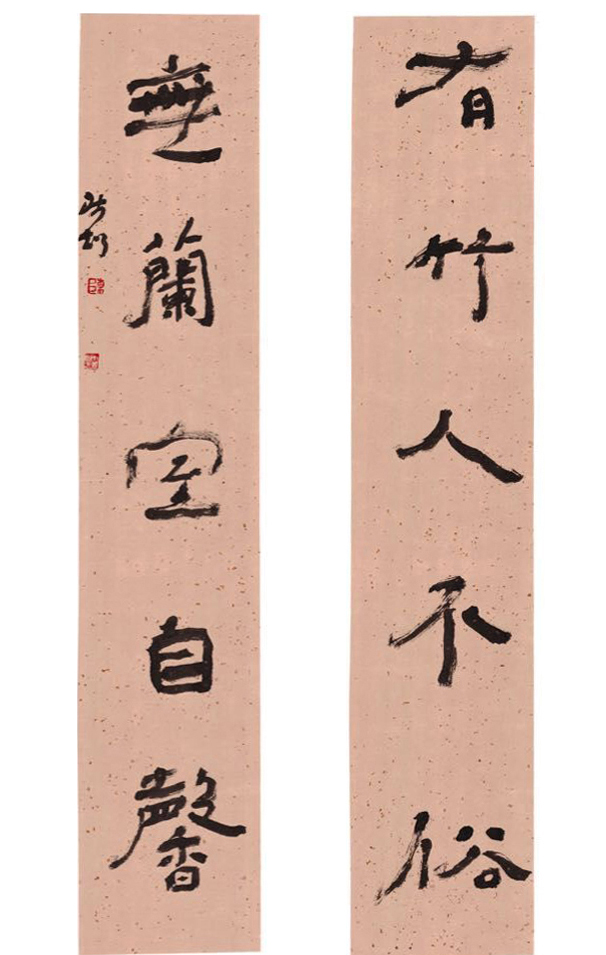 有竹人不俗
無蘭室自馨